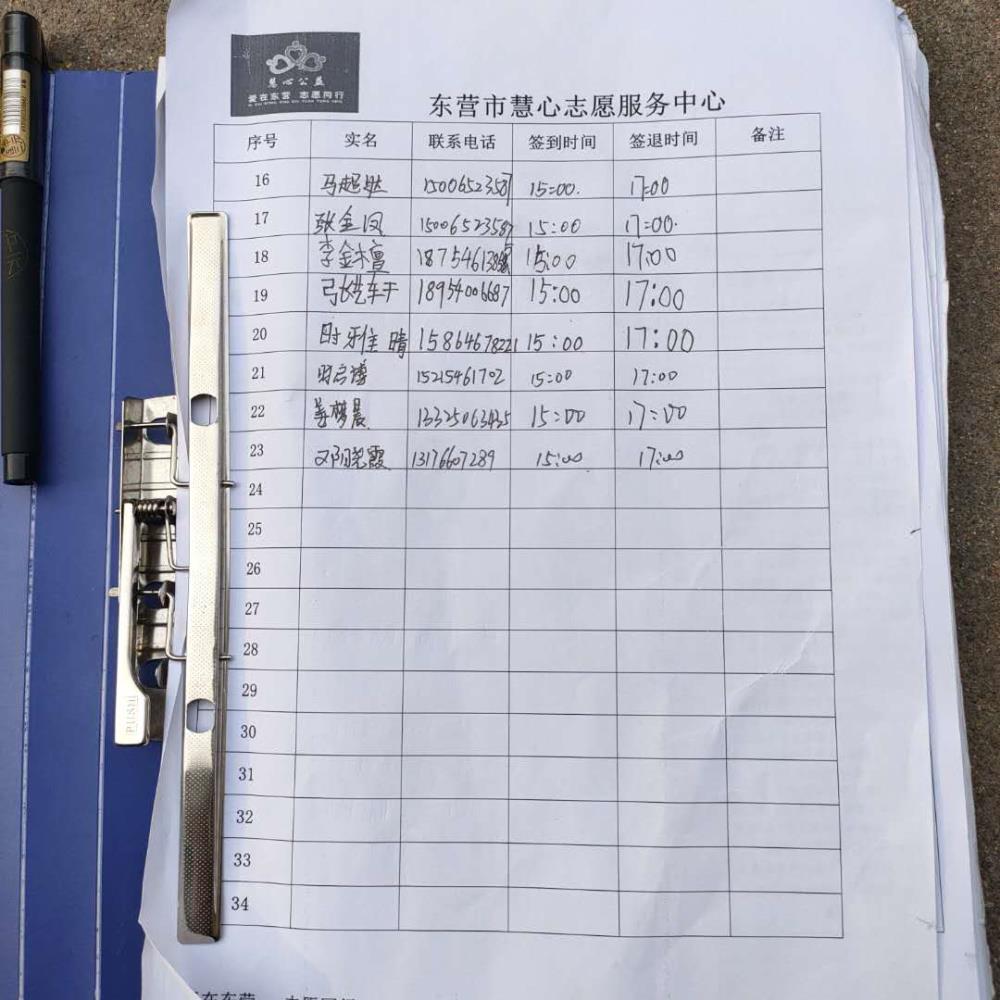 慧心公益
爱在东营 志愿同行
东营市慧心志愿服务中心
序号 实名 联系电话 签到时间 签退时间 备注
16 马超 15006523587 15:00. 17:00
17 张金凤 15006523587 15:00 17:00.
18 李金檀 18754613 15:00 17:00
19 18954006687 15:00 17:00
20 时雅晴 15864678221 15:00 17:00
21 时启博 15215461702 15:00 17:00
22 姜梦晨 13325063435 15:00 17:00
23 邓晓霞 13176607289 15:00 17:00
24
25
26
27
28
29
30
31
32
33
34
PUSH